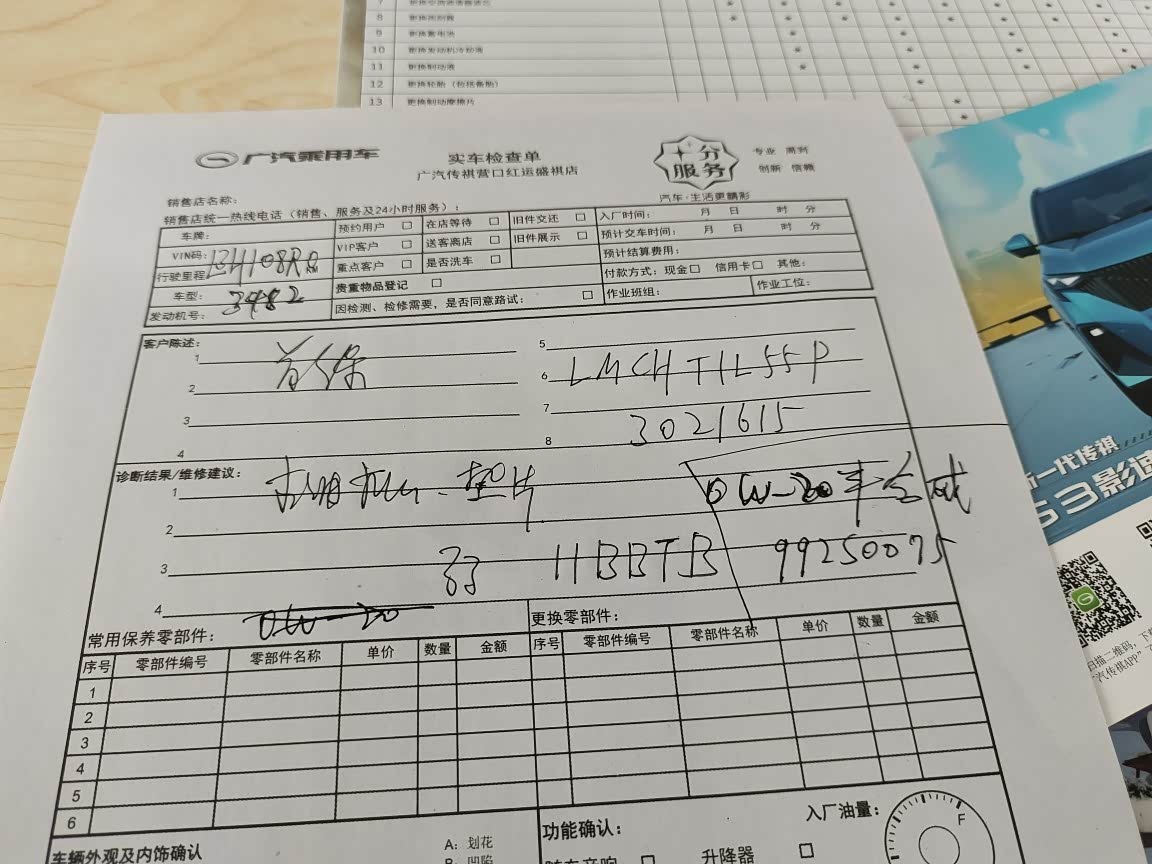 8
9 更换蓄电池
10 更换发动机冷却液
11 更换制动液
12 更换轮胎(包括备胎)
13 更换制动摩擦片
广汽乘用车
实车检查单
广汽传祺营口红运盛祺店
十分服务
专业 周到
创新 信赖
汽车·生活更精彩
销售店名称:
销售店统一热线电话(销售、服务及24小时服务):
车牌:
VIN码:
行驶里程
KM
车型:
3482
发动机号:
预约用户 □ 在店等待 □ 旧件交还 □
VIP客户 □ 送客离店 □ 旧件展示 □
重点客户 □ 是否洗车 □
贵重物品登记 □
因检测、检修需要,是否同意路试: □
入厂时间: 月 日 时 分
预计交车时间: 月 日 时 分
预计结算费用:
付款方式:现金□ 信用卡□ 其他:
作业班组: 作业工位:
客户陈述:
1 首保
2
3
4
5
6 LMCHTIL55P
7 3021615
8
诊断结果/维修建议:
1 机滤 垫片
0W-20半合成
2
3 HBBTB 99250075
4 0W-20
常用保养零部件:
更换零部件:
序号 零部件编号 零部件名称 单价 数量 金额 序号 零部件编号 零部件名称 单价 数量 金额
1
2
3
4
5
6
车辆外观及内饰确认
A:划花
B:凹陷
功能确认:
入厂油量:
F
升降器 □
新一代传祺
GS3影速
扫描二维码,下
"汽传祺APP"